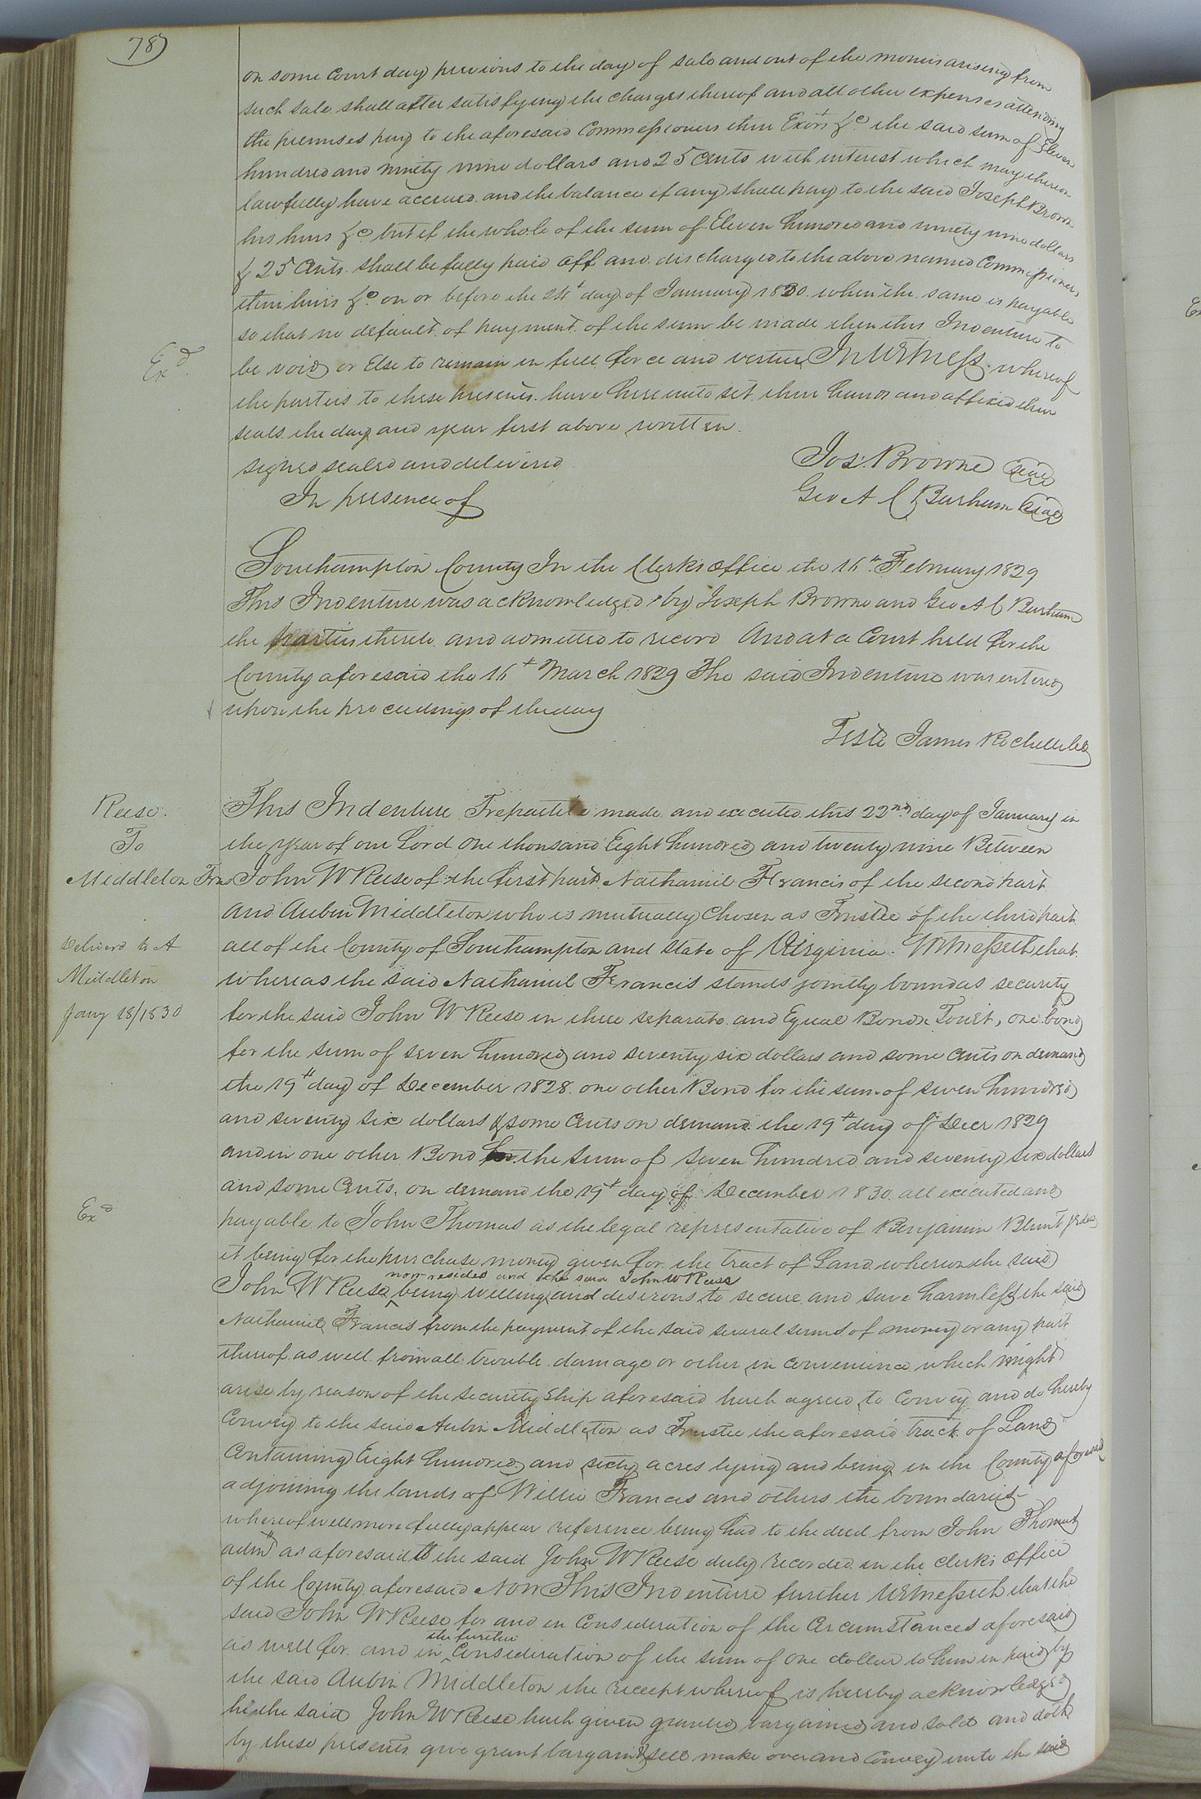 78)
on some Court day previous to the day of sale and out of the monies arising from
such sale shall after satisfying the charges thereof and all other expenses attending
the premises pay to the aforesaid Commissioners their Exors &c the said sum of Eleven
hundred and ninety nine dollars and 25 cents with interest which may thereon
lawfully have accrued and the balance if any shall pay to the said Joseph Browne
his heirs &c but if the whole of the sum of Eleven hundred and ninety nine dollars
& 25 Cents shall be fully paid off and discharged to the above named Commissioners
their heirs &c on or before the day of January 1830 when the same is payable
so that no default of payment of the sum be made then this Indenture to
be void or Else to remain in full force and virtue In Witness whereof
Exd
the parties to these presents have hereunto set their hands and affixed their
seals the day and year first above written
signed sealed and delivered
In presence of
Jos: Browne seal
Geo A C Barham seal
Southampton County In the Clerks office the 16th February 1829
This Indenture was acknowledged by Joseph Browne and Geo A C Barham
the parties thereto and admitted to record And at a Court held for the
County aforesaid the 16th March 1829 The said Indenture was entered
upon the proceedings of the day
Teste James Rochelle
Reese
To
Middleton Trus
Deliverd to A
Middleton
Jany 18/1830
This Indenture Trepartite made and executed this 22nd day of January in
the year of our Lord one thousand Eight hundred and twenty nine Between
John W Reese of the first part Nathaniel Francis of the second part
And Aubin Middleton who is mutually Chosen as Trustee of the third part
all of the County of Southampton and State of Virginia. Witnesseth that
whereas the said Nathaniel Francis stands jointly bound as security
for the said John W Reese in three separate and Equal Bonds Towit, one bond
for the sum of seven hundred and seventy six dollars and some cents on demand
the 19th day of December 1828 one other Bond for the sum of seven hundred
and seventy six dollars & some Cents on demand the 19th day of Decr 1829
and in one other Bond for the sum of seven hundred and seventy six dollars
and some cents, on demand the 19th day of December 1830 all executed and
Exd
payable to John Thomas as the legal representative of Benjamin Blunt
it being for the purchase money given for the tract of Land whereon the said
now resides and the said John W Reese
John W Reese being willing and desirous to secure and save harmless the said
Nathaniel Francis from the payment of the said several sums of money or any part
thereof as well from all trouble damage or other in convenience which might
arise by reason of the security ship aforesaid hath agreed to Convey and do hereby
Convey to the said Aubin Middleton as Trustee the aforesaid tract of Land
Containing Eight hundred and sixty acres lying and being in the County aforesaid
adjoining the lands of Willie Francis and others the boundaries
whereof will more fully appear reference being had to the deed from John Thomas
admr as aforesaid to the said John W Reese duly recorded in the clerks office
of the County aforesaid Now This Indenture further Witnesseth that the
said John W Reese for and in Consideration of the Circumstances aforesaid
the further
as well for and in Consideration of the sum of one dollar to him in paid by
the said Aubin Middleton the receipt whereof is hereby acknowledged
he the said John W Reese hath given granted bargained and sold and doth
by these presents give grant bargain & sell make over and Convey unto the said